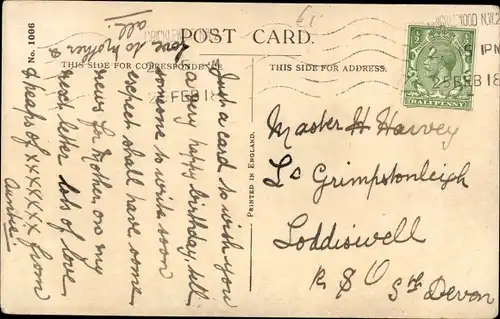 No. 1006
POST CARD.
THIS SIDE FOR CORRESPONDENCE
THIS SIDE FOR ADDRESS.
PRINTED IN ENGLAND.
CRICKLEWOOD N.W.2
5 PM
25 FEB 18
HALFPENNY
Just a card to wish you
a very happy birthday, tell
someone to write soon
expect shall have some
news for Mother, on my
next letter lots of love
& heaps of xxxxxxx from
Auntie
love to Mother &
all
Master H Harvey
Lr Grimpstonleigh
Loddiswell
R S O
Sth Devon